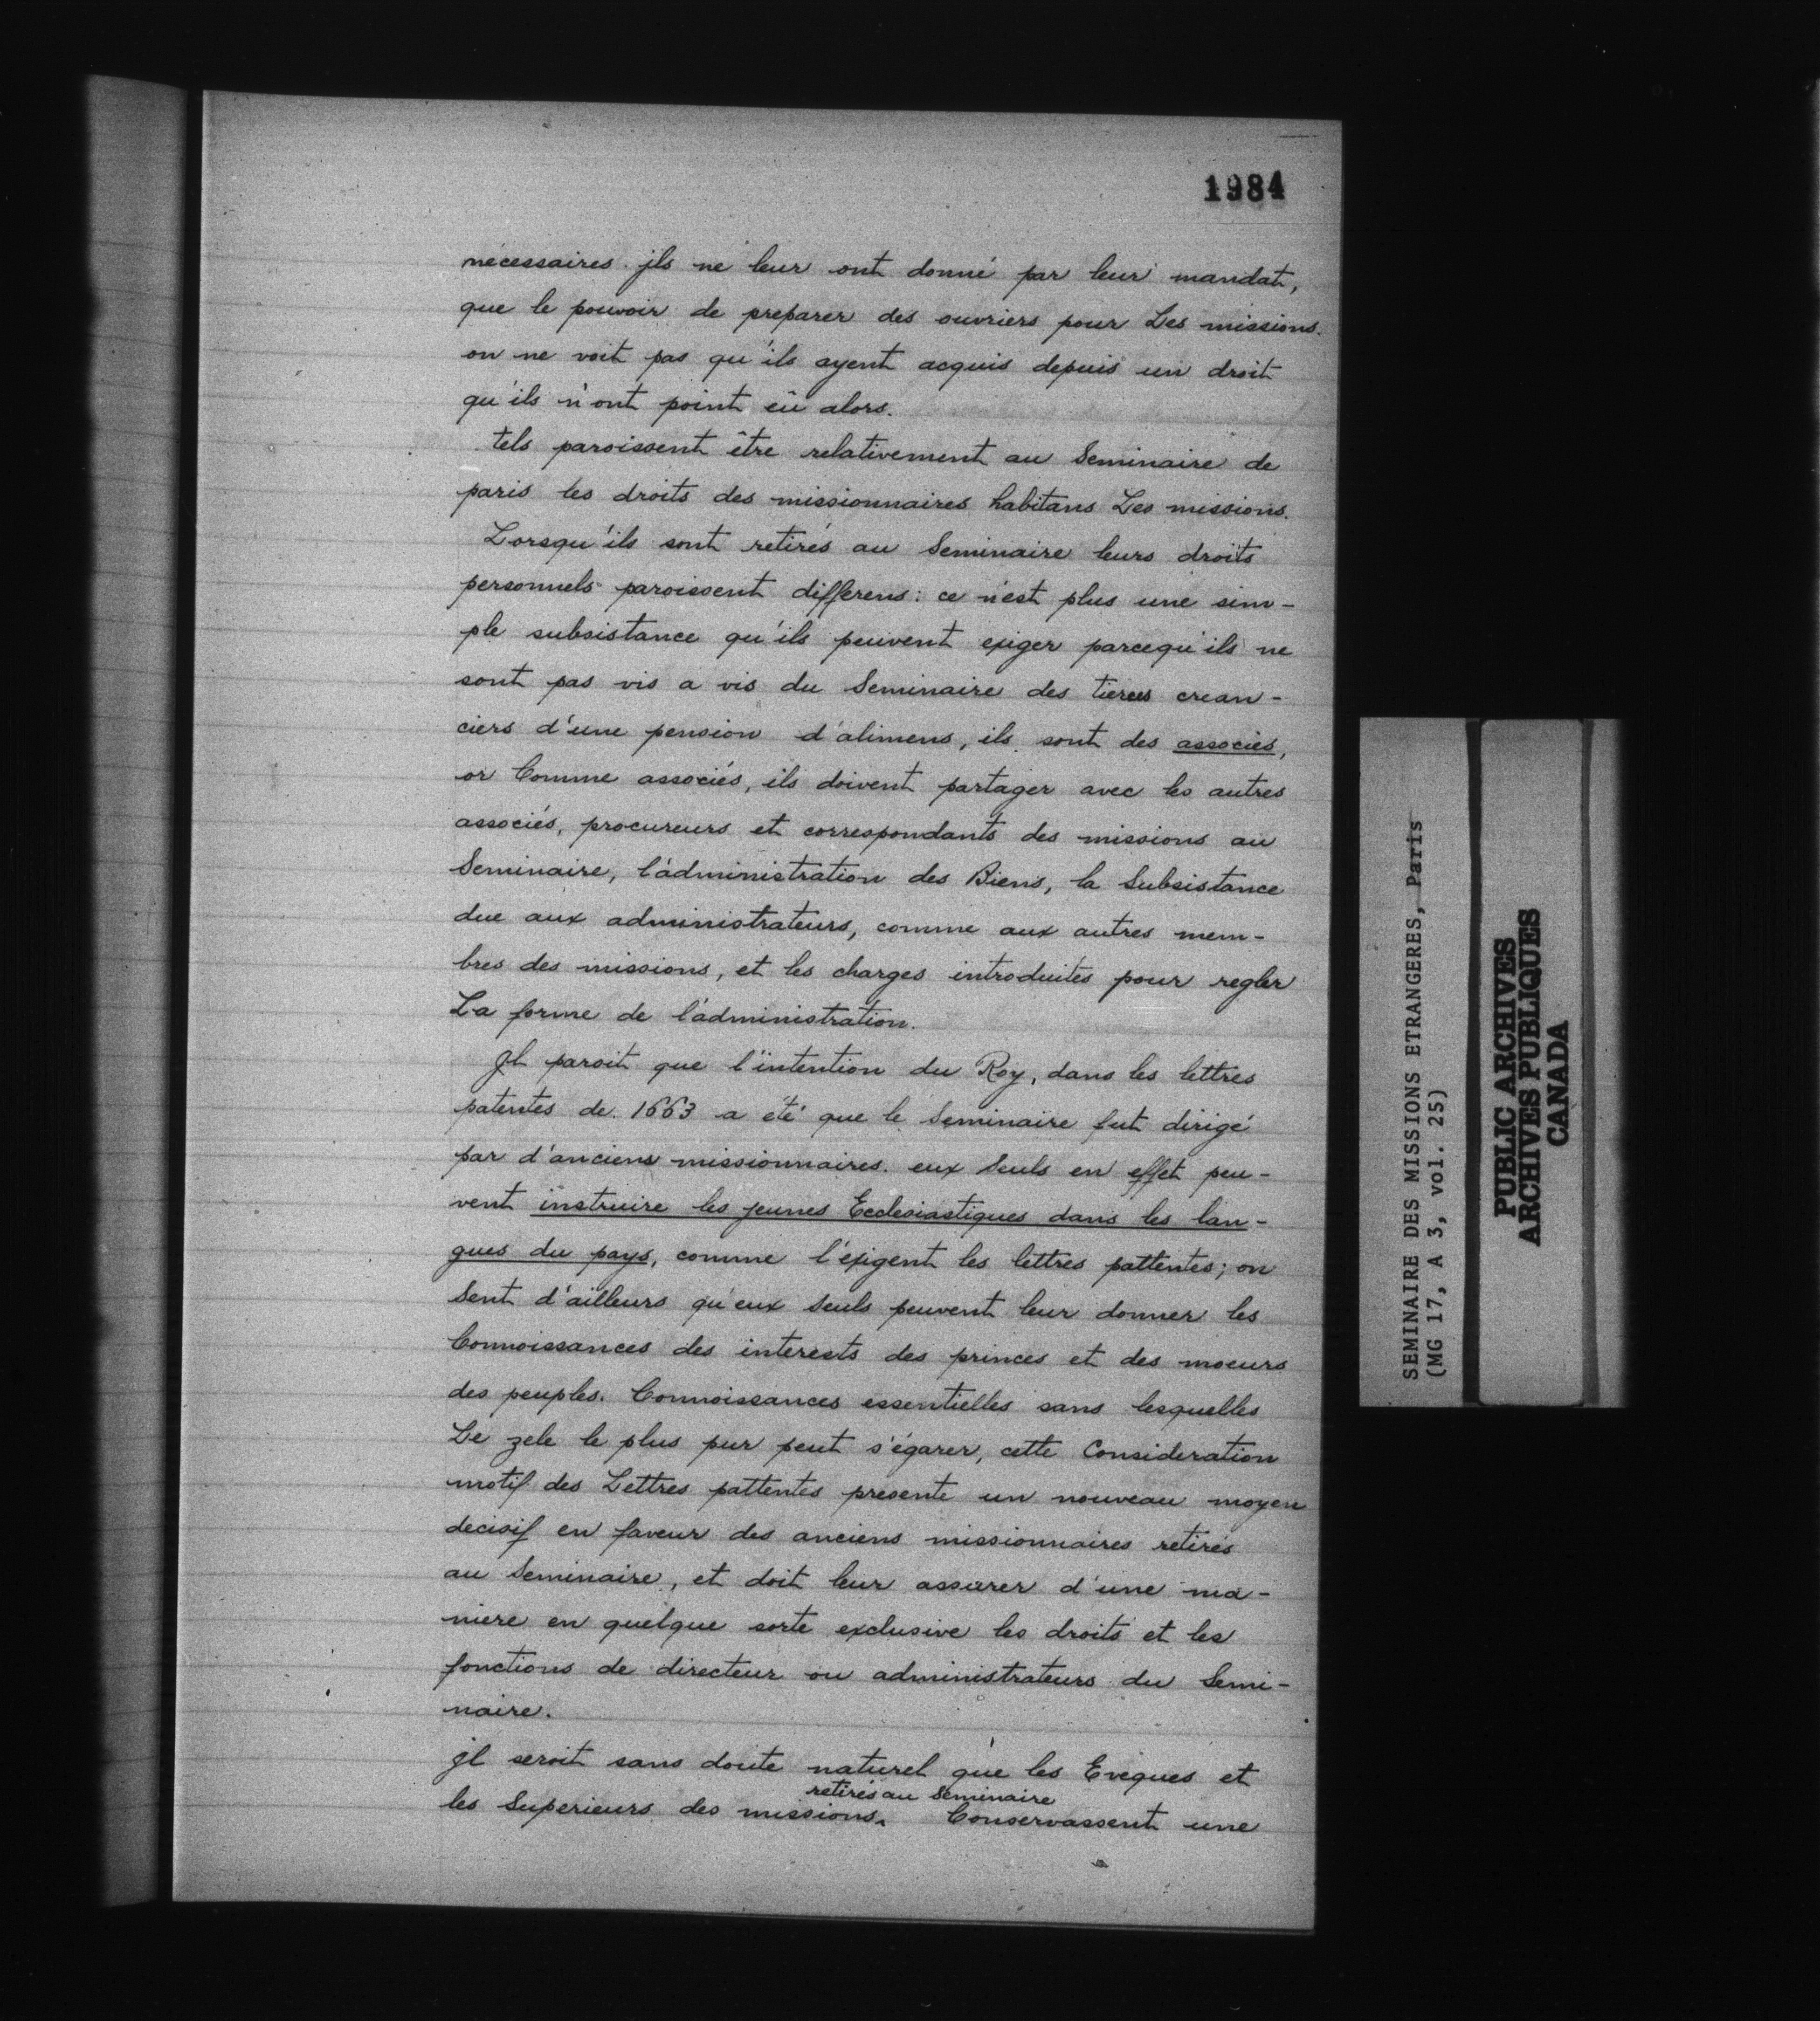 1984
necessaires. jls ne leur ont donné par leur mandat,
que le pouvoir de preparer des ouvriers pour Les missions.
on ne voit pas qu'ils ayent acquis depuis un droit
qu'ils n'ont point eû alors.
tels paroissent être relativement au Seminaire de
paris les droits des missionnaires habitans Les missions.
Lorsqu'ils sont retirés au Seminaire leurs droits
personnels paroissent differens: ce n'est plus une sim-
ple subsistance qu'ils peuvent exiger parcequ'ils ne
sont pas vis a vis du Seminaire des tierces crean-
ciers d'une pension d'alimens, ils sont des associés,
or Comme associés, ils doivent partager avec les autres
associés, procureurs et correspondants des missions au
Seminaire, l'administration des Biens, la Subsistance
due aux administrateurs, comme aux autres mem-
bres des missions, et les charges introduites pour regler
La forme de l'administration.
Jl paroit que l'intention du Roy, dans les lettres
patentes de 1663 a été que le Seminaire fut dirigé
par d'anciens missionnaires. eux Seuls en effet peu-
vent instruire les jeunes Ecclesiastiques dans les lan-
gues du pays, comme l'exigent les lettres pattentes; on
Sent d'ailleurs qu'eux Seuls peuvent leur donner les
Connoissances des interests des princes et des moeurs
des peuples. Connoissances essentielles sans lesquelles
Le zele le plus pur peut s'égarer, cette Consideration
motif des Lettres pattentes presente un nouveau moyen
decisif en faveur des anciens missionnaires retirés
au Seminaire, et doit leur assurer d'une ma-
niere en quelque sorte exclusive les droits et les
fonctions de directeur ou administrateurs du Semi-
naire.
jl seroit sans doute naturel que les Eveques et
retirés au Seminaire
les Superieurs des missions. Conservassent une
SEMINAIRE DES MISSIONS ETRANGERES, Paris
(MG 17, A 3, vol. 25)
PUBLIC ARCHIVES
ARCHIVES PUBLIQUES
CANADA